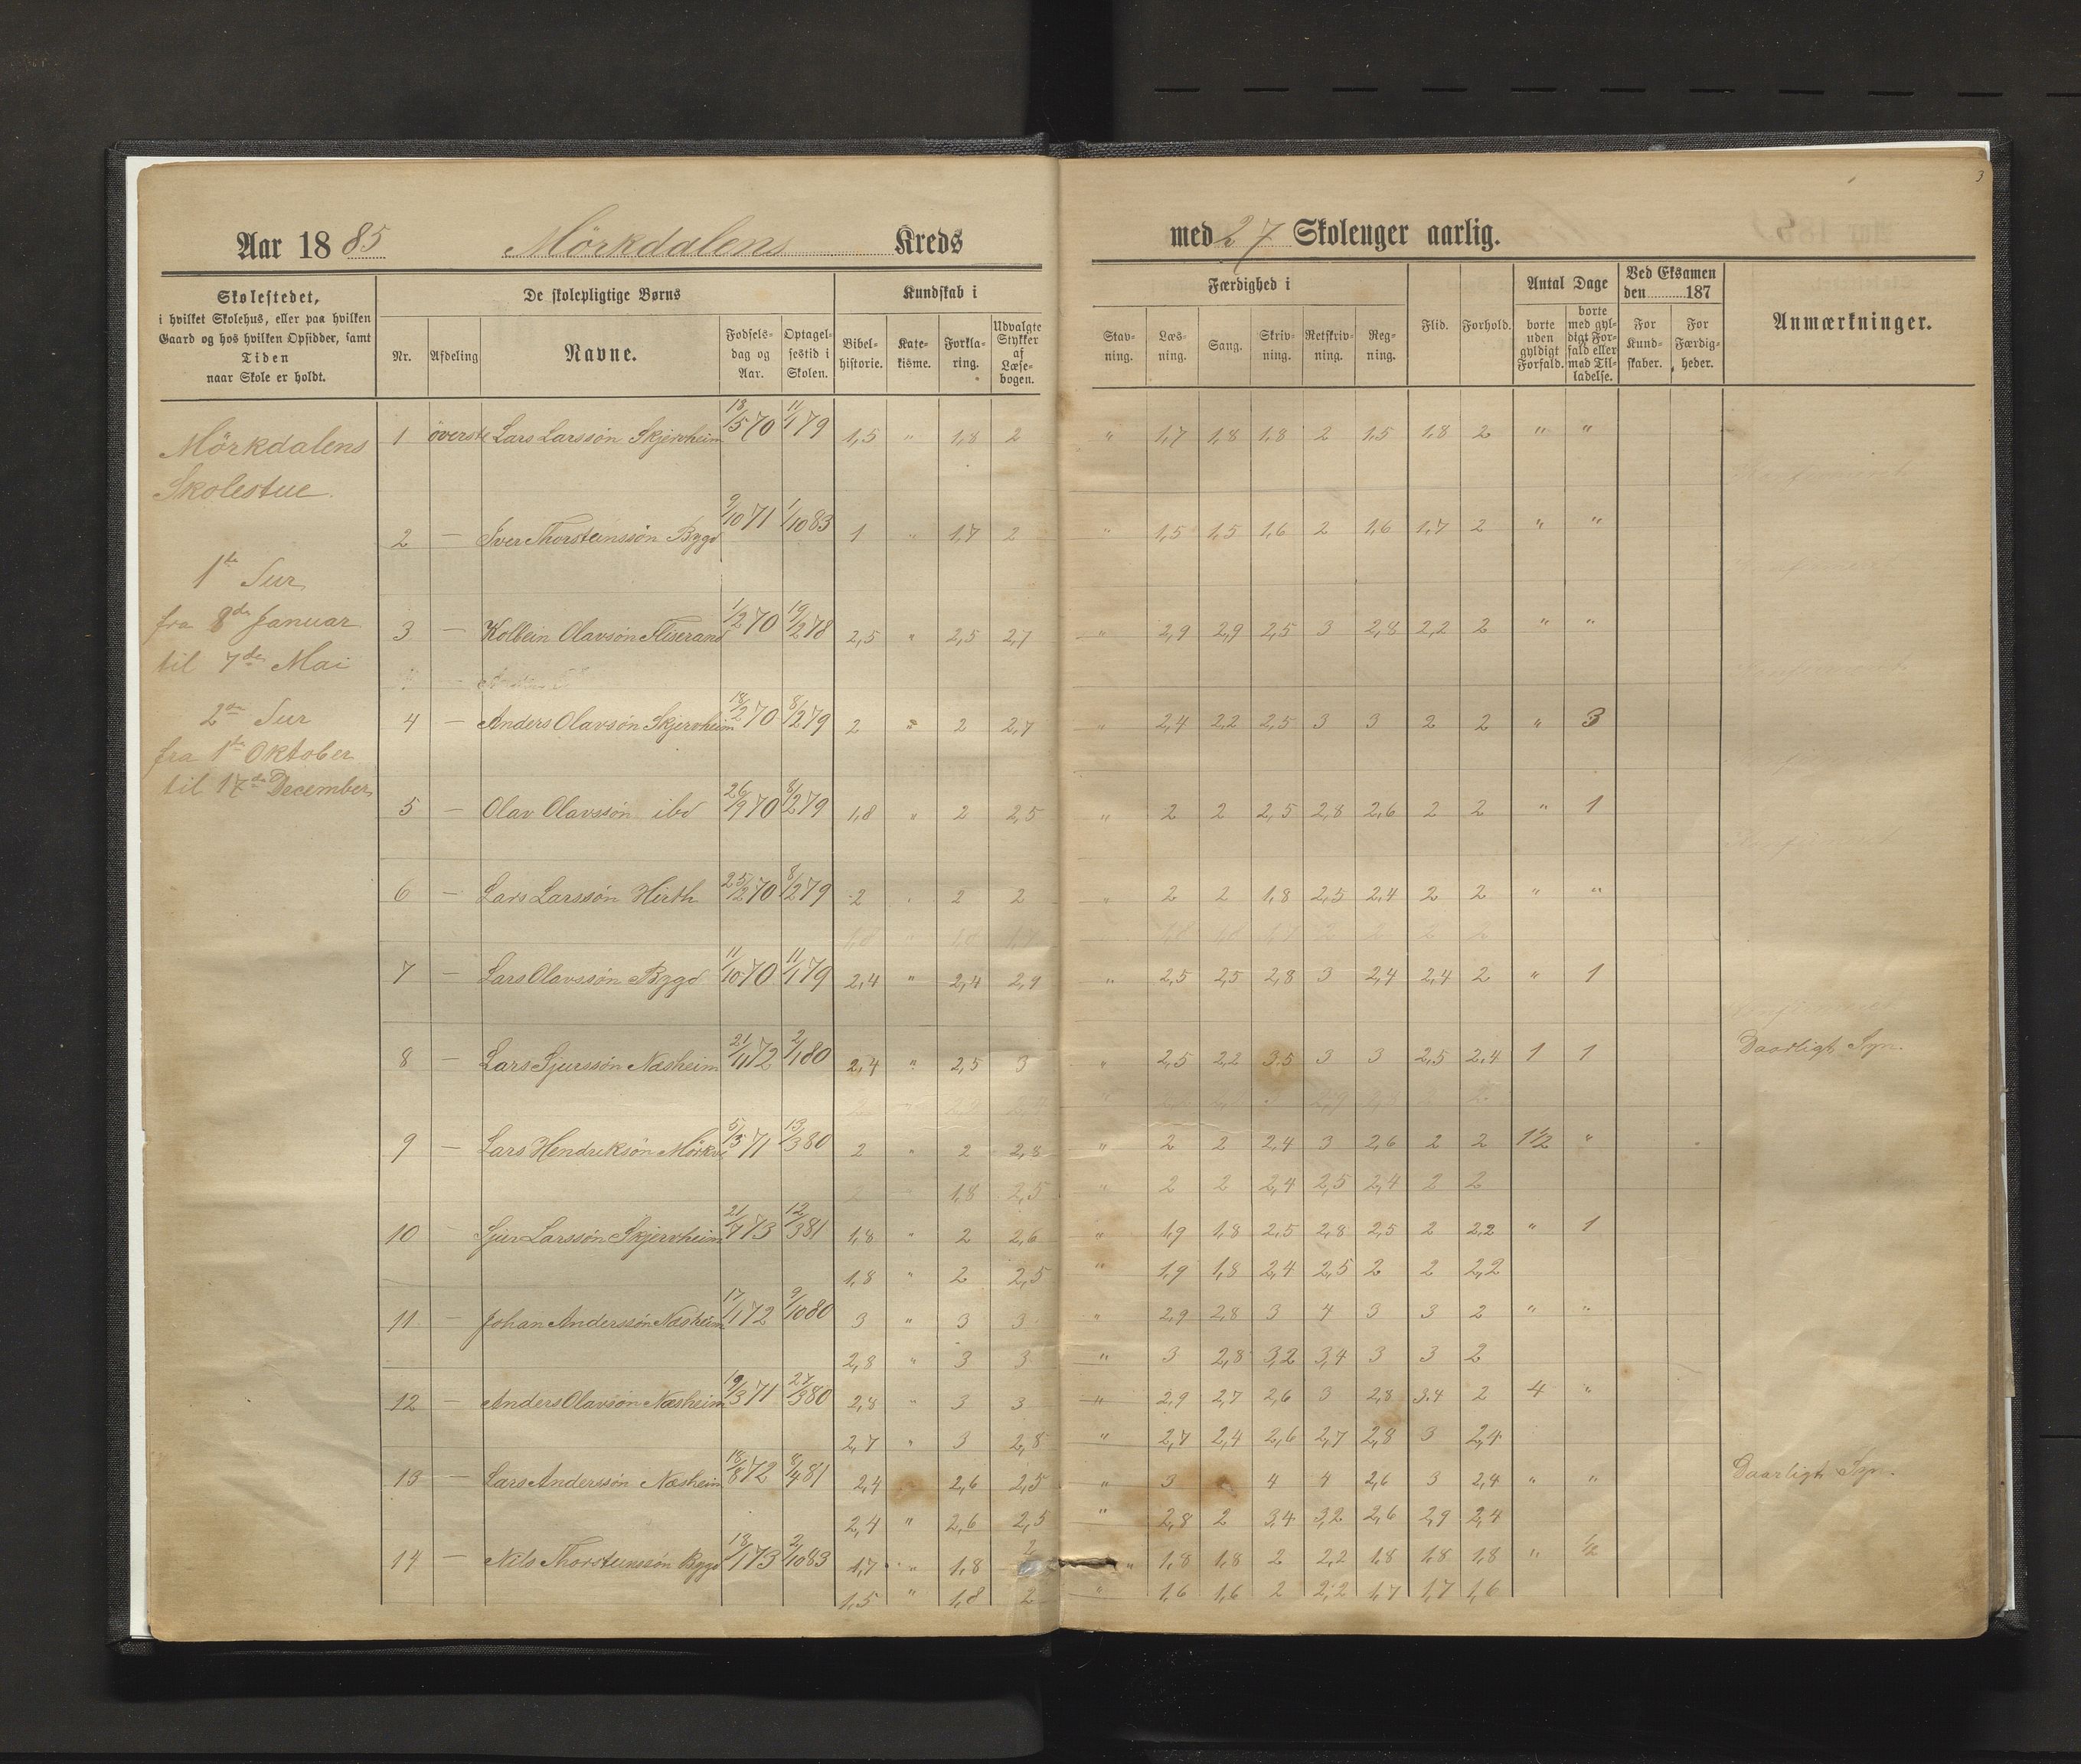 3
Aar 1885 Mörkdalens Kreds
med 27 Skoleuger aarlig.
Skolestedet,
i hvilket Skolehus, eller paa hvilken
Gaard og hos hvilken Opsidder, samt
Tiden
naar Skole er holdt.
De skolepligtige Børns
Nr. Afdeling Navne. Fødsels-dag og Aar. Optagel-sestid i Skolen.
Kundskab i
Bibel-historie. Kate-kisme. Forkla-ring. Udvalgte Stykker af Læse-bogen.
Færdighed i
Stav-ning. Læs-ning. Sang. Skriv-ning. Retskriv-ning. Reg-ning. Flid. Forhold.
Antal Dage
borte uden gyldigt Forfald. borte med gyl-digt For-fald eller med Til-ladelse.
Ved Eksamen
den 187
For Kund-skaber. For Færdig-heder.
Anmærkninger.
Mörkdalens
Skolestue.
1ste Tur
fra 8de Januar
til 7de Mai
2den Tur
fra 1ste Oktober
til 17de December
1 överste Lars Larssön Skjervheim 13/5 70 11/1 79 1,5 " 1,8 2 " 1,7 1,8 1,8 2 1,5 1,8 2 " "
2 — Iver Thorsteinssön Bygd 9/10 71 1/10 83 1 " 1,7 2 " 1,5 1,5 1,6 2 1,6 1,7 2 " "
3 — Kolbein Olavsön Fliserand 1/2 70 19/2 78 2,5 " 2,5 2,7 " 2,9 2,9 2,5 3 2,8 2,2 2 " "
4 — Anders Olavsön Skjervheim 18/2 70 8/2 79 2 " 2 2,7 " 2,4 2,2 2,5 3 3 2 2 " 3
5 — Olav Olavssön ibd 26/9 70 8/2 79 1,8 " 2 2,5 " 2 2 2,5 2,8 2,6 2 2 " 1
6 — Lars Larssön Hirth 25/2 70 8/2 79 2 " 2 2 " 2 2 1,8 2,5 2,4 2 2 " "
7 — Lars Olavssön Bygd 11/10 70 11/1 79 2,4 " 2,4 2,9 " 2,5 2,5 2,8 3 2,4 2,4 2 " 1
8 — Lars Sjurssön Næsheim 21/11 72 2/1 80 2,4 " 2,5 3 " 2,5 2,2 3,5 3 3 2,5 2,4 1 1 Daarligt Syn.
9 — Lars Hendriksön Mörkve 5/3 71 13/3 80 2 " 2 2,8 " 2 2 2,4 3 2,6 2 2 1½ "
2 1,8 2,5 " 2 2 2,4 2,5 2,4 2 2
10 — Sjur Larssön Skjervheim 21/7 73 12/3 81 1,8 " 2 2,6 " 1,9 1,8 2,5 2,8 2,5 2 2,2 " 1
1,8 " 2 2,5 " 1,9 1,8 2,4 2,5 2 2 2,2
11 — Johan Anderssön Næsheim 17/1 72 9/10 80 3 " 3 3 " 2,9 2,8 3 4 3 3 2 " "
2,8 " 3 3 " 3 2,8 3,2 3,4 3 3 2
12 — Anders Olavsön Næsheim 19/3 71 27/3 80 2,8 " 3 3 " 2,9 2,7 2,6 3 2,8 3,4 2 4 "
2,7 " 3 2,8 " 2,7 2,4 2,6 2,7 2,8 3 2,4
13 — Lars Anderssön Næsheim 18/8 72 8/4 81 2,4 2,6 2,5 " 3 4 4 2,6 3 2,4 " " Daarligt Syn.
2,4 " 2,6 2,5 " 2,8 2 3,4 3,2 2,6 2,9 2,4
14 — Nils Thorsteinssön Bygd 13/1 73 2/10 83 1,7 " 1,8 2 " 1,8 1,8 2 2,2 1,8 1,8 1,8 " ½
1,5 " 1,8 2 " 1,6 1,6 2 2,2 1,7 1,7 1,6